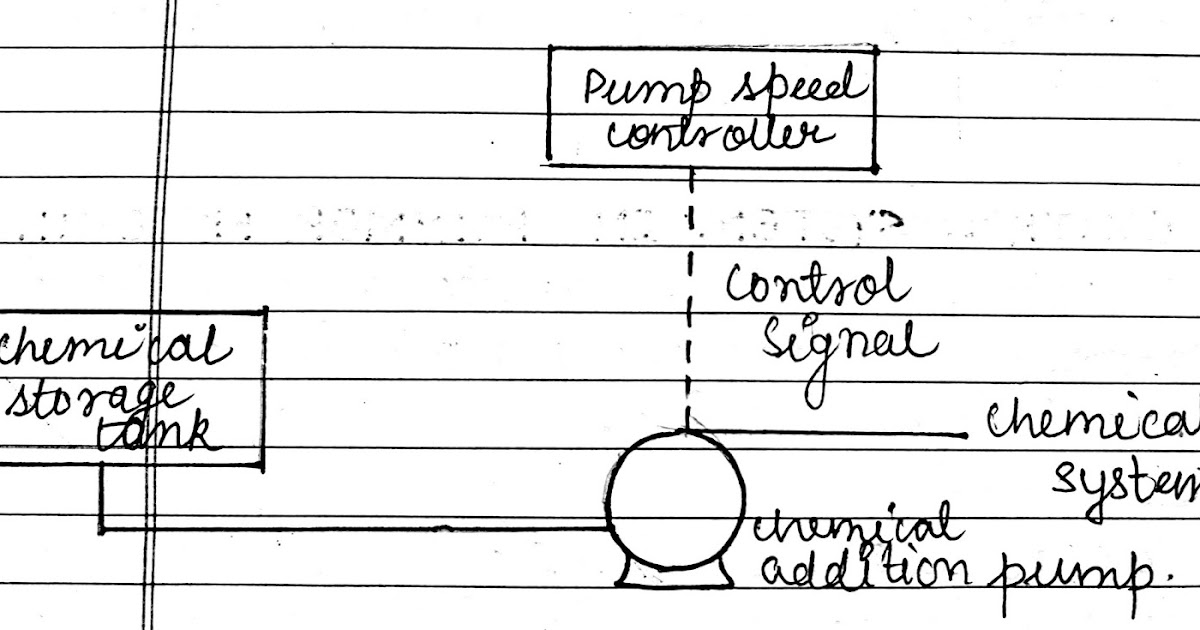 Pump speed
controller
control
signal
chemical
storage
tank
chemical
addition pump.